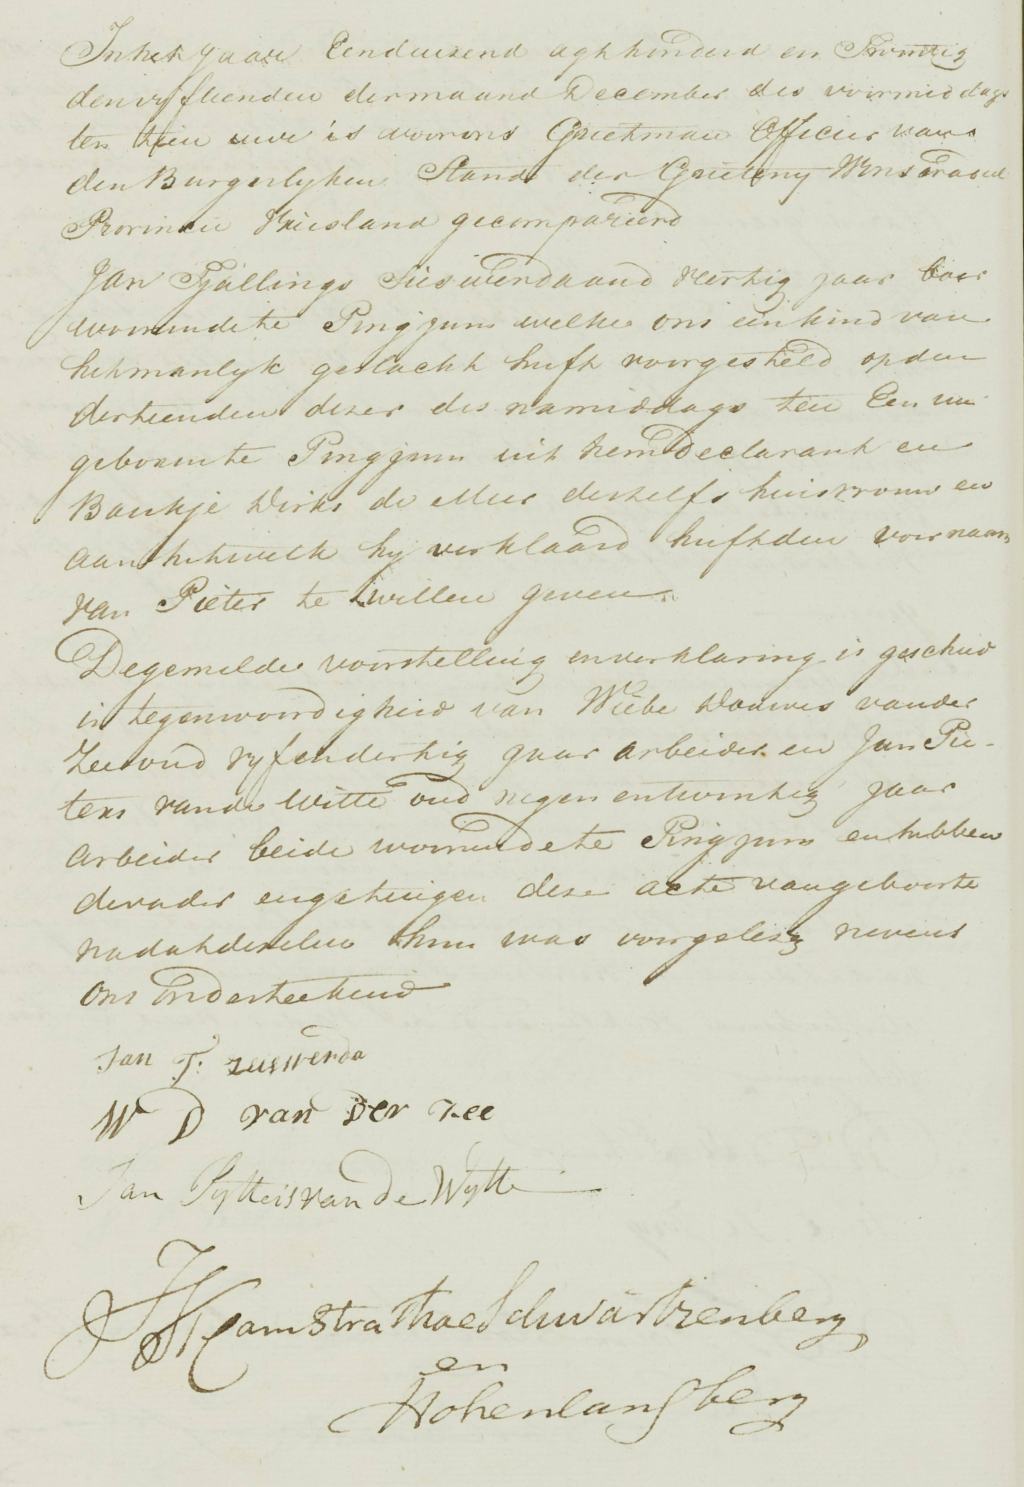 In het Jaar Eenduizend agthonderd en Twintig
den vyftienden der maand December des voormiddags
ten tien uure is voor ons Grietman Officier van
den Burgerlyken Stand der Grieteny Wonseradeel
Provincie Vriesland gecompareerd
Jan Tjallings Sieswerda oud Veertig jaar boer
woonende te Pingjum welke ons een kind van
het manlyk geslacht heeft voorgesteld op den
dertienden dezer des namiddags ten Een uur
geboren te Pingjum uit hem Declarant en
Baukje Dirks de Meer deszelfs huisvrouw en
aan hetwelk hy verklaard heeft den voornaam
van Pieter te willen geven
De gemelde voorstelling en verklaring is geschied
in tegenwoordigheid van Wiebe Douwes van der
Zee oud vyfendertig jaar arbeider en Jan Pie-
ters van de Witte oud negen en twintig jaar
arbeider beide woonende te Pingjum en hebben
de vader en getuigen deze acte van geboorte
na dat dezelve hun was voorgelezen nevens
ons onderteekend
Jan T. zieswerda
W D van Der Zee
Jan Pytters van De Wytte
Camstra thoe Schwartzenberg
en
Hohenlansberg